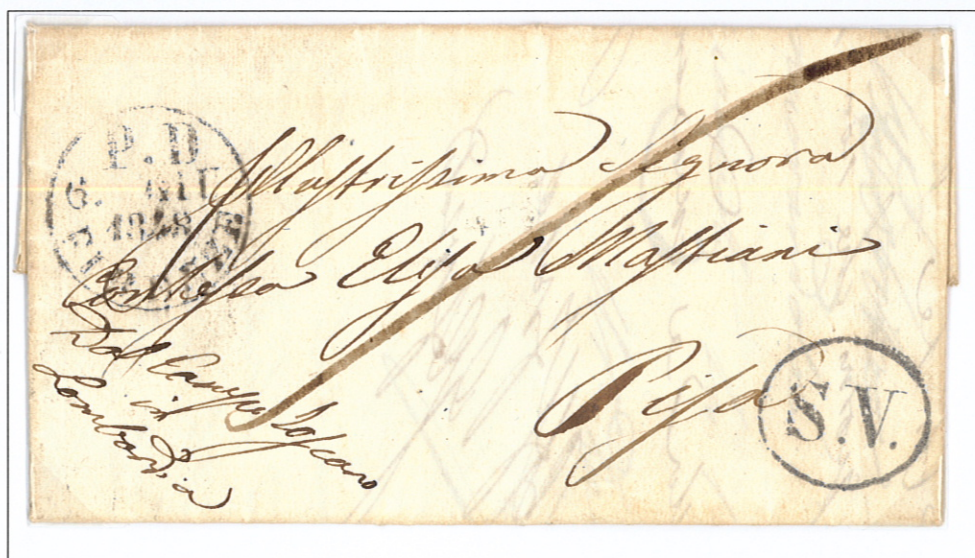 P. D.
6. GIU
1848
FIRENZE
Illustrissima Signora
Contessa Elisa Mastiani
Pisa
Dal Campo Toscano
in
Lombardia
S.V.